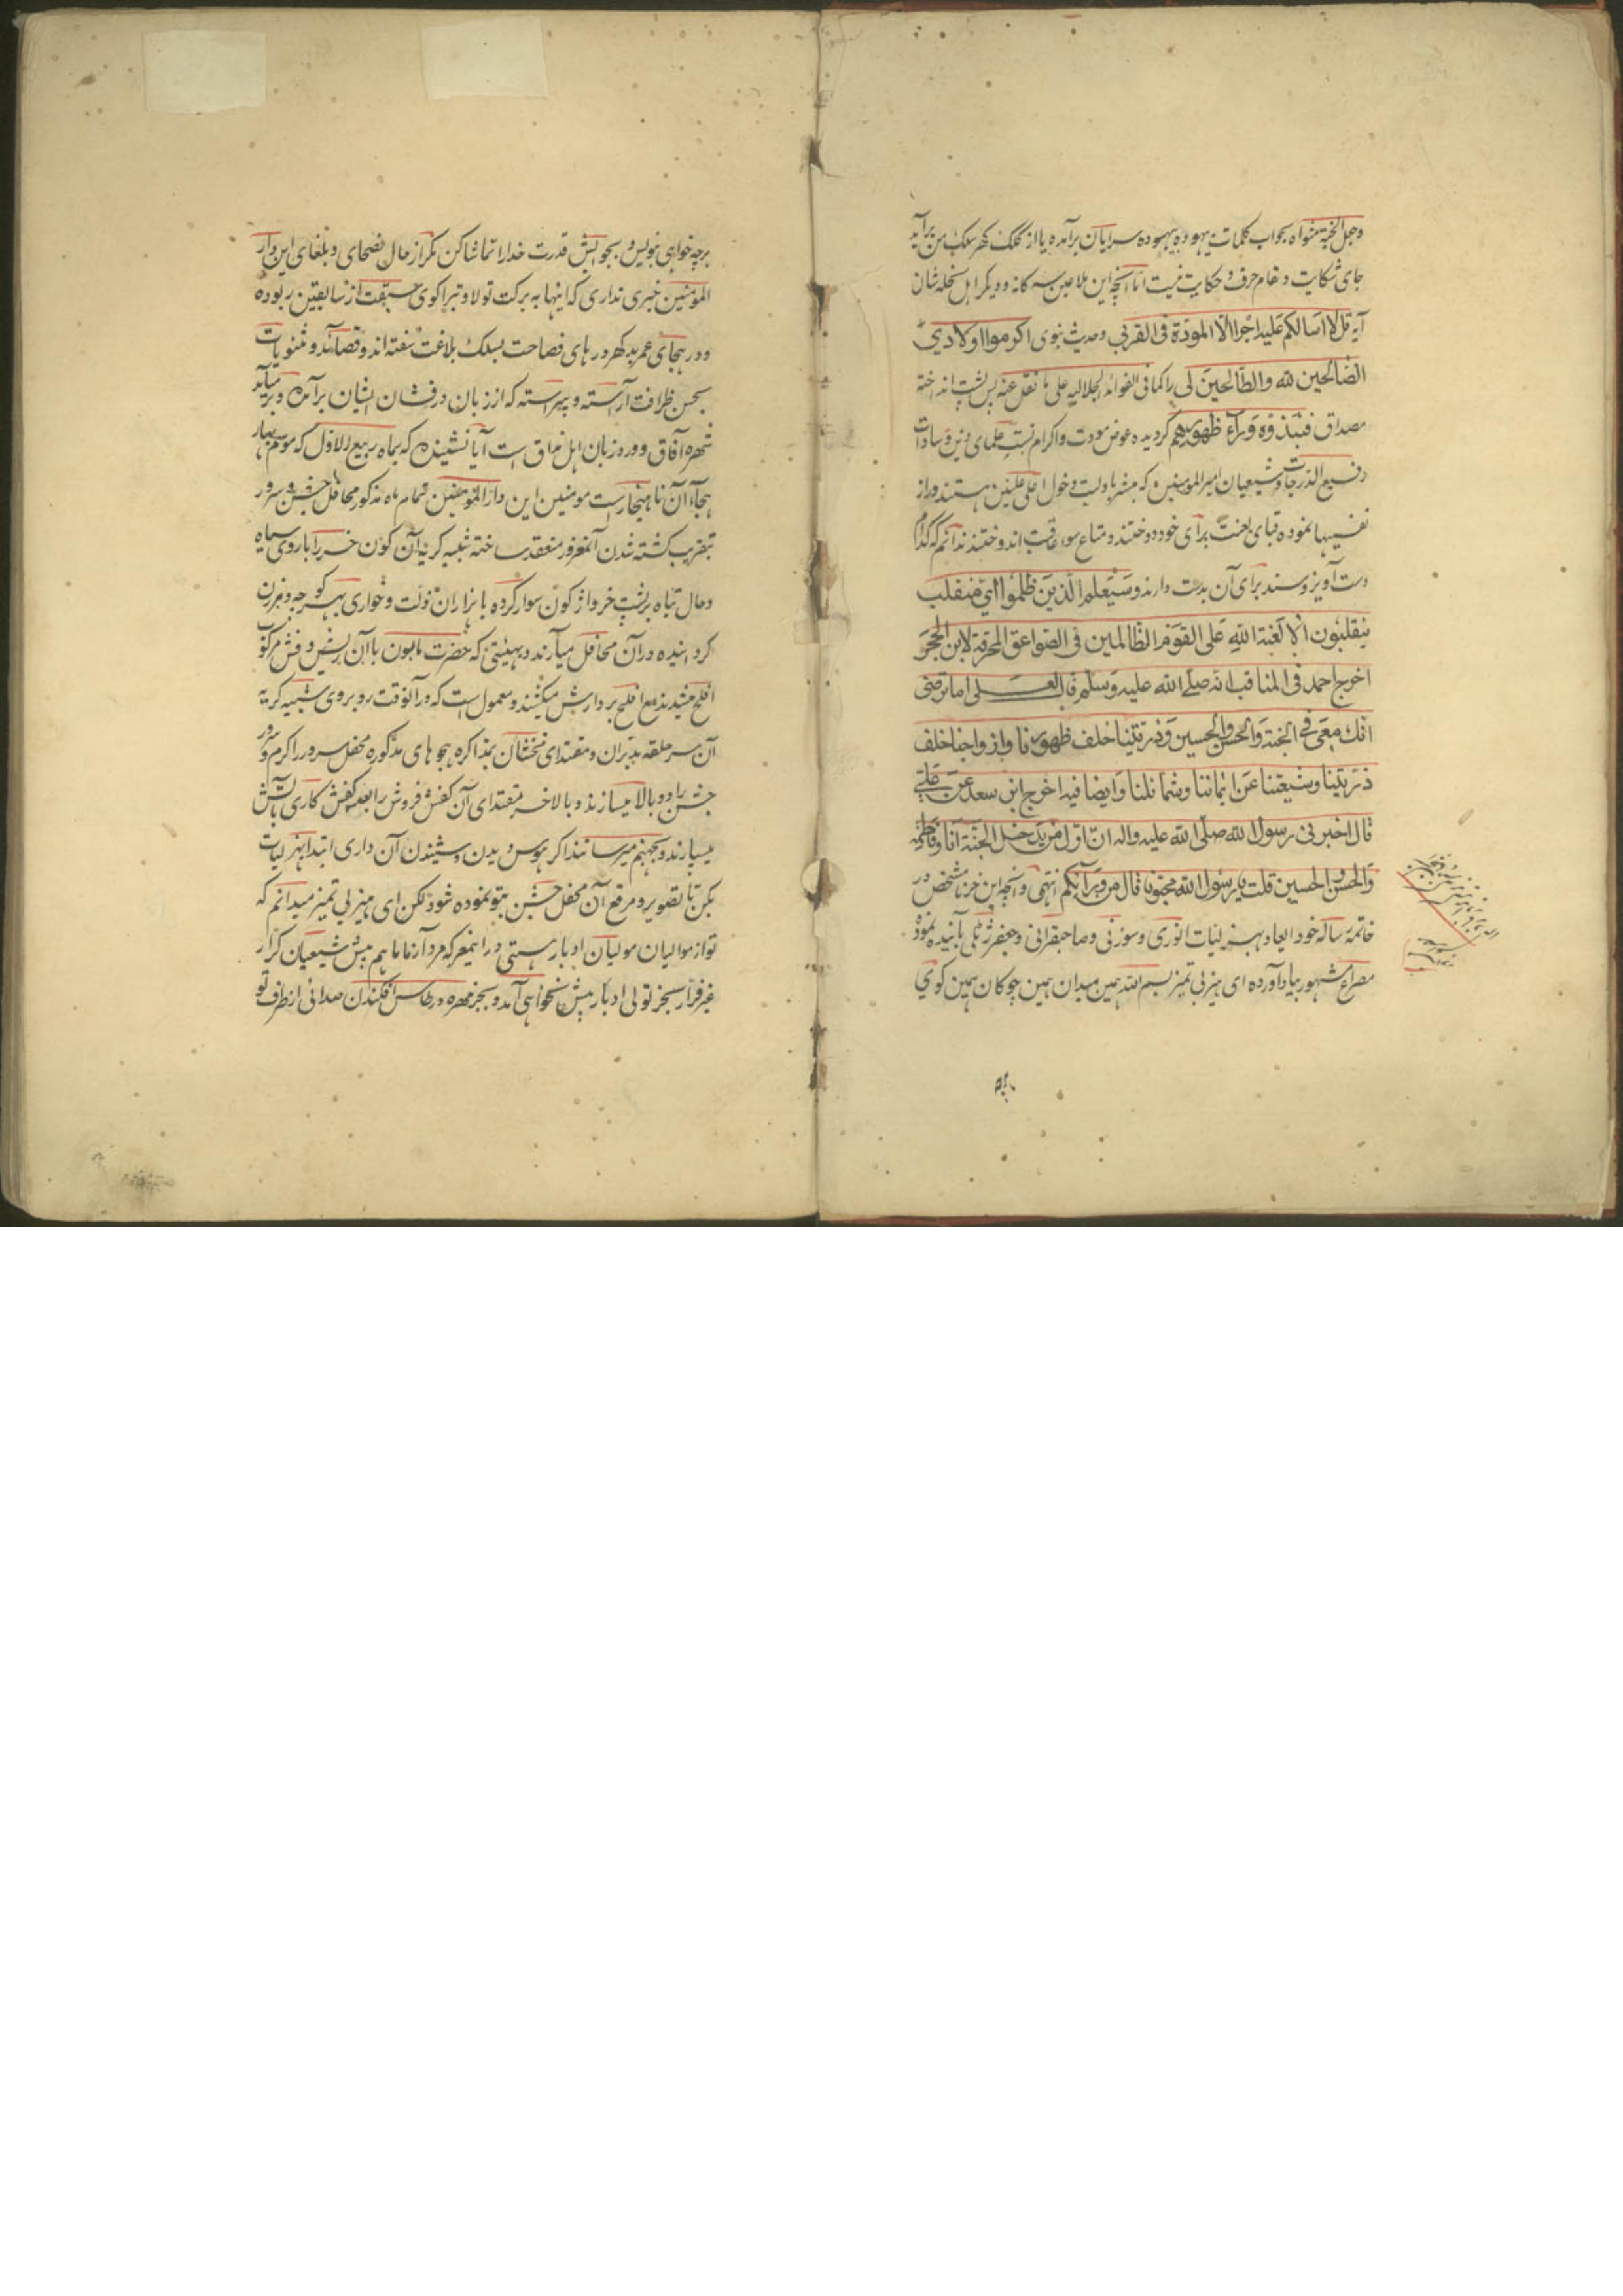 وجعل الجنة مثواه بجواب کلمات بیهوده بیهوده سرایان برآمده یا از کلک گهر سلک من برآید
جای شکایت و مقام حرف و حکایت نیست اما آنچه این ملاعین سه کانه و دیگر اهل نحله شان
آیه قل لا اسالکم علیه اجرا الا المودة فی القربی وحدیث نبوی اکرموا اولادی
الصالحین لله والطالحین لی را کما فی الفوائد الجلالیه علی ما نقل عنه پس پشت انداخته
مصداق فنبذوه وراء ظهورهم کردیده عوض مودت و اکرام نسبت علمای دین و سادات
رفیع الدرجات و شیعیان امیرالمومنین که مبشر باولیت دخول اعلی علیین هستند دراز
نفسیها نموده قبای لعنت برای خود دوختند و متاع سوء عاقبت اندوختند ندانم که کدام
دست آویز و سند برای آن بدست دارند وسیعلم الذین ظلموا ای منقلب
ینقلبون الا لعنة الله علی القوم الظالمین فی الصواعق المحرقة لابن الحجر
اخرج احمد فی المناقب انه صلی الله علیه وسلم قال لعلی اما ترضی
انک معی فی الجنة والحسن والحسین وذریتنا خلف ظهورنا وازواجنا خلف
ذریتنا وشیعتنا عن ایماننا وشمائلنا وایضا فیه اخرج ابن سعد عن علی
قال اخبرنی رسول الله صلی الله علیه واله ان اول من یدخل الجنة انا وفاطمة
والحسن والحسین قلت یا رسول الله محبونا قال من ورائکم انتهی و آنچه این خر نامشخص در
خاتمه رساله خود ایعاد بهزلیات انوری و سوزنی و صاحبقرانی و جعفر زٹلی بآئیده نموده
مصراع مشهور بیاد آورده ای هیز بی تمیز بسم الله همین میدان همین چوکان همین کوی
برچه
برچه خواهی بنویس و بجوابش قدرت خدا را تماشا کن مکر از حال فصحای و بلغای این دار
المومنین خبری نداری که اینها به برکت تولا و تبرا کوی سبقت از سابقین ربوده
و در هجای عمر بدکهر درهای فصاحت بسلک بلاغت سفته اند و قصائد و مثنویات
بحسن ظرافت آراسته و پیراسته که از زبان درفشان ایشان برآمده و برمیآید
شهره آفاق و ورد زبان اهل مذاق است آیا نشنیدهٔ که بماه ربیع الاول که موسم بهار
هجاء آن ناهنجار است مومنین این دار المومنین تمام ماه مذکور محافل جشن و سرور
بتقریب کشته شدن آن مغرور منعقد ساخته شبیه کریه آن کون خر را با روی سیاه
و حال تباه بر پشت خر واژکون سوار کرده با هزاران ذلت و خواری بهر کوچه و برزن
کردانیده در آن محافل میآرند و بهیئتی که حضرت مابون با آن ریش و فش مرکوب
افلح میشدند مع افلح بر دارش میکشند و معمول است که در آنوقت روبروی شبیه کریه
آن سرحلقه مدبران و مقتدای مخنثان بمذاکره هجوهای مذکوره محفل سرور را کرم و سرور
جشن را دوبالا میسازند و بالاخر مقتدای آن کفش فروش را بعد کفش کاری بآتش
میسپارند و بجهنم میرسانند اکر هوس دیدن و شنیدن آن داری ابتدا بهزلیات
بکن تا تصویر و مرقع آن محفل جشن بتو نموده شود لکن ای هیز بی تمیز میدانم که
تو از موالیان مولیان ادبار هستی در این معرکه مردآزما ما هم پیش شیعیان کرار
غیر فرار بجز تولی ادبار پیش نخواهی آمد و بجز مهره در طاس افکندن صدائی از طرف تو